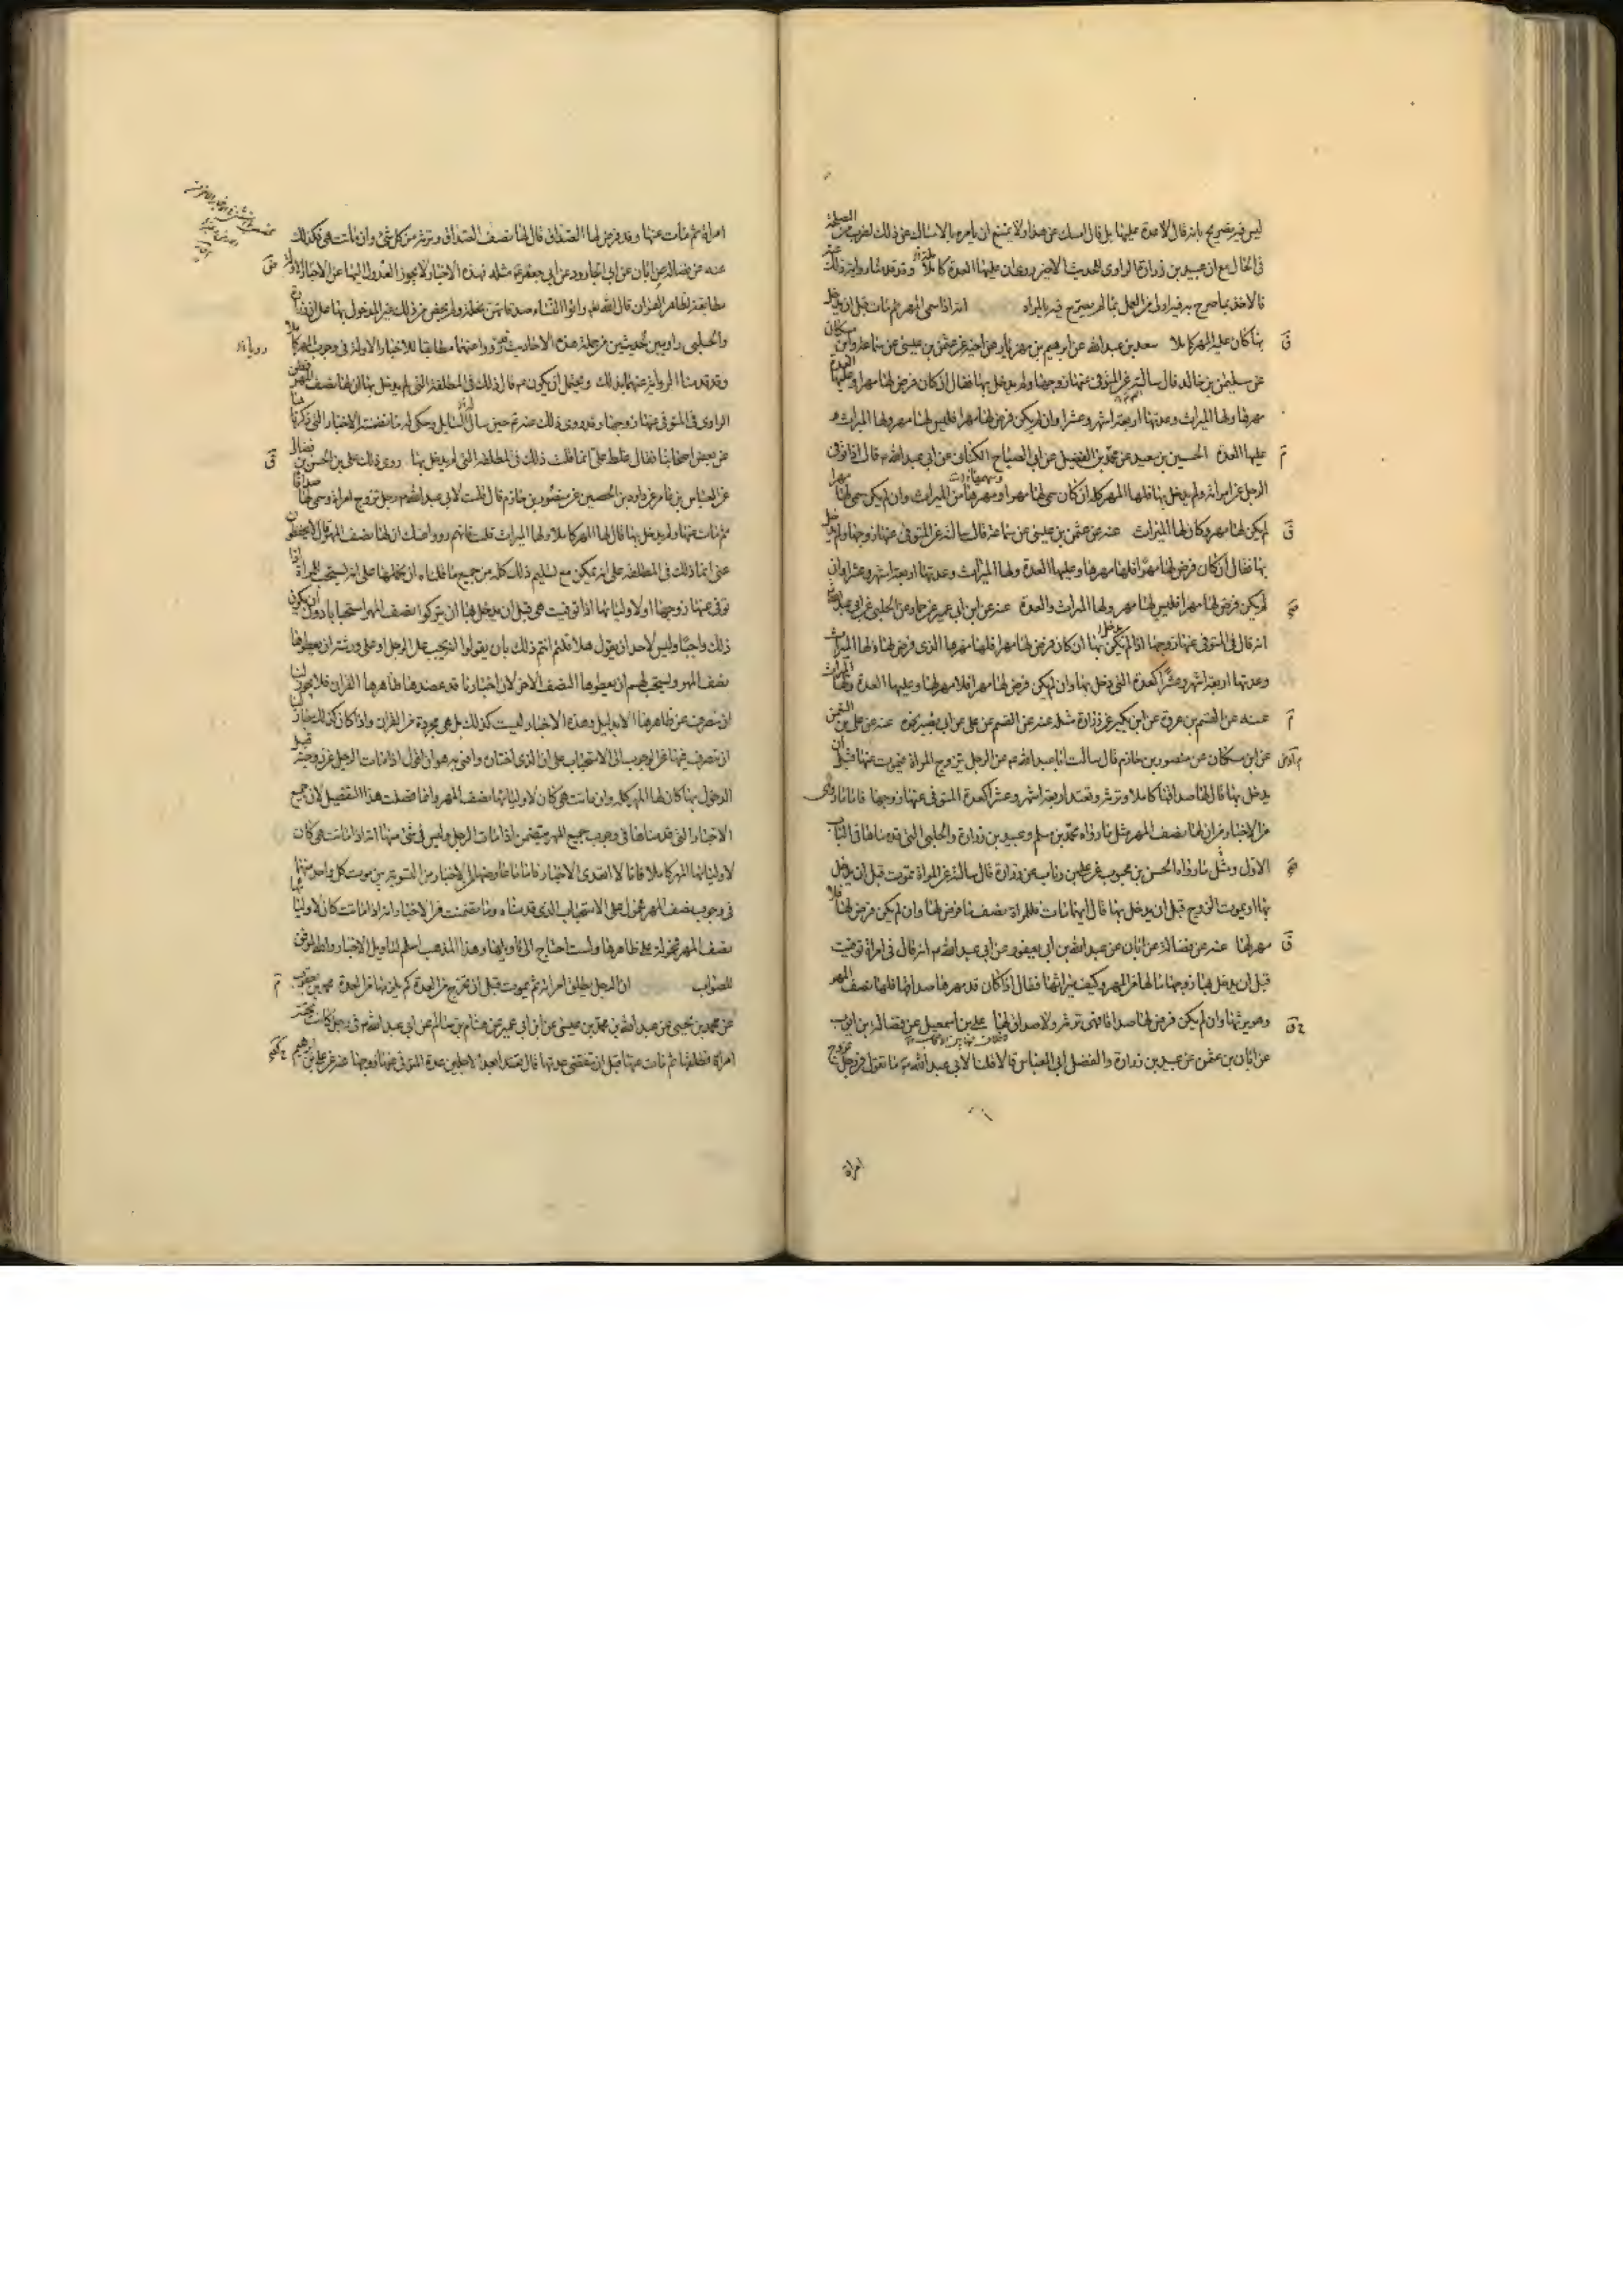 ليس فيه تصريح بانه قال لا عدة عليها بل قال امسك عن هذا ولا يمتنع ان يامره بالامساك عن ذلك لضرب من المصلحة
في الحال مع ان عبيد بن زرارة الراوى للحديث الاخير روى ان عليها العدة كاملة وقد قدمناه وايضا ذلك
فالاخذ بما صرح به فيه اولى من العمل بما لم يصرح فيه بالمراد انه اذا سمى المهر ثم مات قبل ان يدخل
بها كان عليه المهر كاملا سعد بن عبد الله عن ابرهيم بن مهزيار عن اخيه عن عثمن بن عيسى عن سماعة وابن مسكان
عن سليمن بن خالد قال سالته عن المتوفى عنها زوجها ولم يدخل بها فقال ان كان فرض لها مهرا فلها
مهرها ولها الميراث وعدتها اربعة اشهر وعشرا وان لم يكن فرض لها مهرا فليس لها مهر ولها الميراث
عليها العدة الحسين بن سعيد عن محمد بن الفضيل عن ابى الصباح الكنانى عن ابى عبد الله م قال اذا توفى
الرجل عن امراته ولم يدخل بها فلها المهر كله ان كان سمى لها مهرا وسهمها من الميراث وان لم يكن سمى لها مهرا
لم يكن لها مهر وكان لها الميراث عنه عن عثمن بن عيسى عن سماعة قال سالته عن المتوفى عنها زوجها ولم يدخل
بها فقال ان كان فرض لها مهرا فلها مهرها وعليها العدة ولها الميراث وعدتها اربعة اشهر وعشرا وان
لم يكن فرض لها مهرا فليس لها مهر ولها الميراث والعدة عنه عن ابن ابى عمير عن حماد عن الحلبى عن ابى عبد الله
انه قال فى المتوفى عنها زوجها اذا لم يكن دخل بها ان كان فرض لها مهرا فلها مهرها الذى فرض لها ولها الميراث
وعدتها اربعة اشهر وعشرا كعدة التى دخل بها وان لم يكن فرض لها مهرا فلا مهر لها وعليها العدة ولها الميراث
عنه عن القسم بن عروة عن ابن بكير عن زرارة مثله عنه عن القسم عن على عن ابى بصير نحوه عنه عن على بن النعمن
عن ابن مسكان عن منصور بن حازم قال سالت ابا عبد الله م عن الرجل يتزوج المراة فيموت عنها قبل ان
يدخل بها قال لها صداقها كاملا وترثه وتعتد اربعة اشهر وعشرا كعدة المتوفى عنها زوجها فاما ما روى
من الاخبار من ان لها نصف المهر مثل ما رواه محمد بن مسلم وعبيد بن زرارة والحلبى التى قدمناها فى الباب
الاول ومثل ما رواه الحسن بن محبوب عن على بن رئاب عن زرارة قال سالته عن المراة تموت قبل ان يدخل
بها او يموت الزوج قبل ان يدخل بها قال ايهما مات فللمراة نصف ما فرض لها وان لم يكن فرض لها فلا
مهر لها عنه عن فضالة عن ابان عن عبد الله بن ابى يعفور عن ابى عبد الله م انه قال فى امراة توفيت
قبل ان يدخل بها زوجها ما لها من المهر وكيف ميراثها فقال اذا كان قد مهرها صداقا فلها نصف المهر
وهو يرثها وان لم يكن فرض لها صداقا فهى ترثه ولا صداق لها على بن اسمعيل عن فضالة بن ايوب
عن ابان بن عثمن عن عبيد بن زرارة والفضل ابى العباس قالا قلنا لابى عبد الله م ما تقول فى رجل تزوج
امراة
امراة ثم مات عنها وقد فرض لها الصداق قال لها نصف الصداق وترثه من كل شئ وان ماتت هى فكذلك
عنه عن فضالة عن ابان عن ابى الجارود عن ابى جعفر م مثله فهذه الاخبار لا يجوز العدول اليها عن الاخبار الاولة
مطابقة لظاهر القران قال الله تعالى واتوا النساء صدقاتهن نحلة ولم يخص من ذلك غير المدخول بها على ان زرارة
والحلبى راويين لحديثين من جملة هذه الاحاديث قد رويا عنهما مطابقا للاخبار الاولة فى وجوب المهر كاملا
وقد قدمنا الرواية عنهما بذلك ويحتمل ان يكون م قال ذلك فى المطلقة التى لم يدخل بها ان لها نصف المهر
الراوى فى المتوفى عنها زوجها وقد روى ذلك عنه م حين ساله السايل وحكى له ما تضمنته الاخبار التى ذكرناها
عن بعض اصحابنا فقال غلط على انما قلت ذلك فى المطلقة التى لم يدخل بها روى ذلك على بن الحسن بن فضال
عن العباس بن عامر عن داود بن الحصين عن منصور بن حازم قال قلت لابى عبد الله م رجل تزوج امراة وسمى لها صداقا
ثم مات عنها ولم يدخل بها قال لها المهر كاملا ولها الميراث قلت فانهم رووا عنك ان لها نصف المهر قال لا يحفظون
عنى انما ذلك فى المطلقة على انه يمكن مع تسليم ذلك كله من جميع ما قلناه ان نحملها على انه يستحب للمراة اذا
توفى عنها زوجها او لاوليائها اذا توفيت هى قبل ان يدخل بها ان يتركوا نصف المهر استحبابا دون ان يكون
ذلك واجبا وليس لاحد ان يقول هلا قلتم انتم ذلك بان يقولوا انه يجب على الرجل او على ورثته ان يعطوها
نصف المهر ويستحب لهم ان يعطوها النصف الاخر لان اخبارنا قد عضدها ظاهر القران فلا يجوز لنا
ان ننصرف عن ظاهرها الا بدليل وهذه الاخبار ليست كذلك بل هى مجردة من القران واذا كان كذلك جاز لنا
ان نتصرف فيها عن الوجوب الى الاستحباب على ان الذى اختاره وافتى به هو ان اقول اذا مات الرجل عن زوجته قبل
الدخول بها كان لها المهر كله وان ماتت هى كان لاوليائها نصف المهر وانما فصلت هذا التفصيل لان جميع
الاخبار التى قدمناها فى وجوب جميع المهر يتضمن اذا مات الرجل وليس فى شئ منها انه اذا ماتت هى كان
لاوليائها المهر كاملا فانا لا اتعدى الاخبار فاما ما عارضها من الاخبار من التسوية بين موت كل واحد منهما
فى وجوب نصف المهر محمول على الاستحباب الذى قدمناه وما تضمنت من الاخبار انه اذا ماتت كان لاوليائها
نصف المهر محمولة على ظاهرها ولست احتاج الى تاويلها وهذا المذهب اسلم لتاويل الاخبار والله الموفق
للصواب ان الرجل يطلق امراته ثم يموت قبل ان تخرج من العدة كم يلزمها من العدة محمد بن يعقوب
عن محمد بن يحيى عن عبد الله بن محمد بن عيسى عن ابن ابى عمير عن هشام بن سالم عن ابى عبد الله م فى رجل كانت تحته
امراة فطلقها ثم مات عنها قبل ان تنقضى عدتها قال تعتد ابعد الاجلين عدة المتوفى عنها زوجها عنه عن على بن ابرهيم